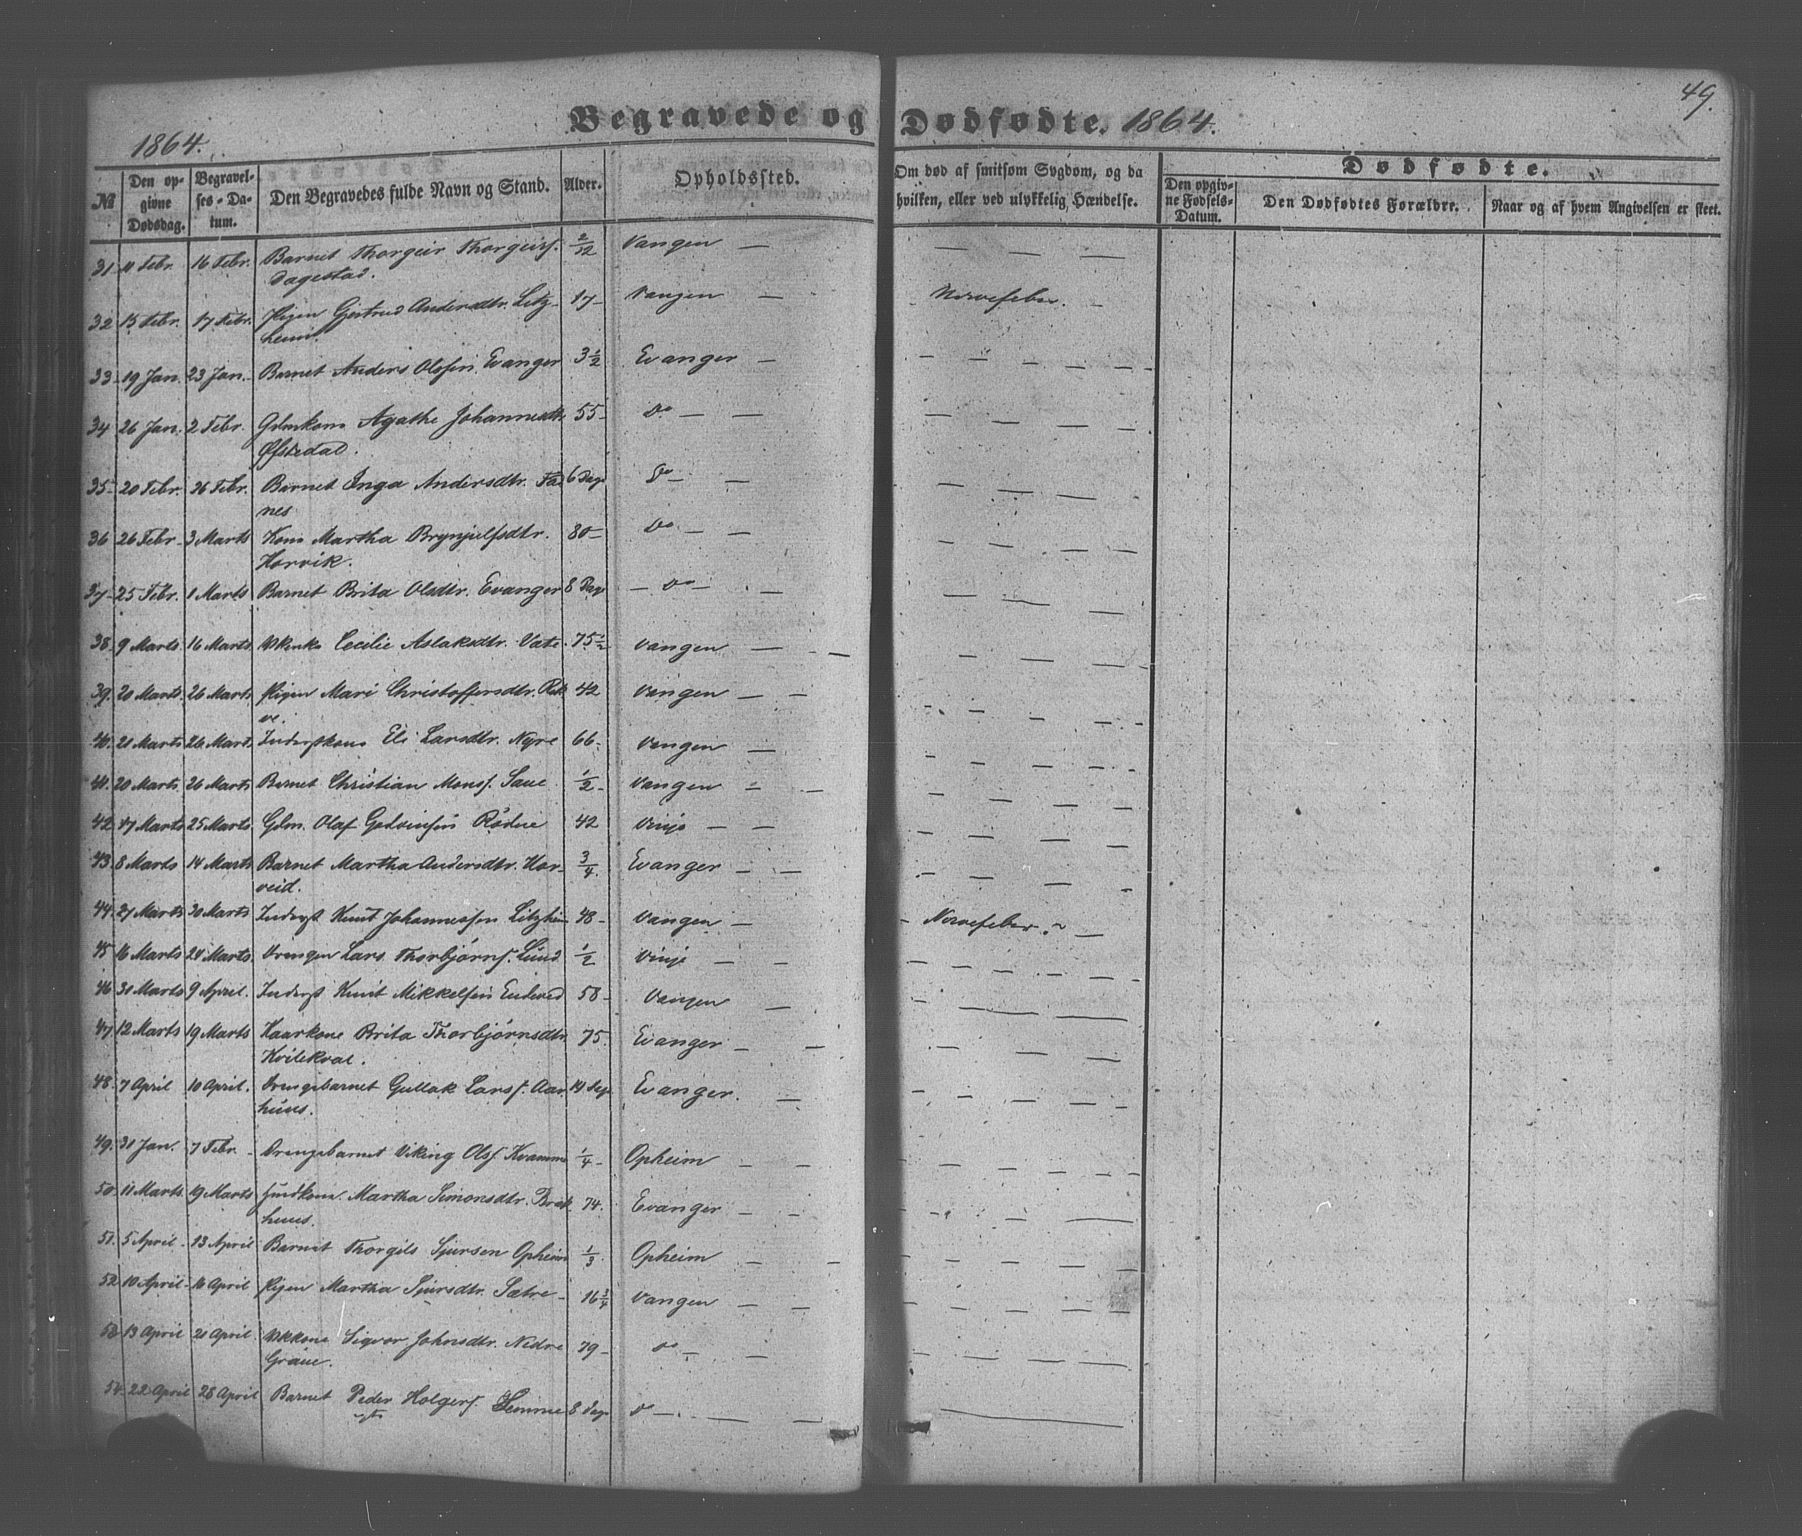 49.
Begravede og Dødfødte. 1864.
1864.
№
Den opgivne Dødsdag.
Begravelses-Datum.
Den Begravedes fulde Navn og Stand.
Alder.
Opholdssted.
Om død af smitsom Sygdom, og da hvilken, eller ved ulykkelig Hændelse.
Dødfødte.
Den opgivne Fødsels-Datum.
Den Dødfødtes Forældre.
Naar og af hvem Angivelsen er skeet.
31 11 Febr. 16 Febr. Barnet Thorgeir Thorgeirs. 2/12 Vangen —
Dagestad.
32 15 Febr. 17 Febr. Pigen Gjertrud Andersdtr. Litz- 17 – Vangen — Nervefeber. –
heim.
33 19 Jan. 23 Jan. Barnet Anders Olsen Evanger 3 1/2 Evanger —
34 26 Jan. 2 Febr. Gdmkone Agathe Johannesdtr. 55 – Do — —
Øfstedal.
35 20 Febr. 26 Febr. Barnet Inga Andersdtr. Fad 6 Dage Do — —
nes
36 26 Febr. 3 Marts Kone Martha Brynjulfsdtr. 80 – Do — —
Horvik.
37 25 Febr. 1 Marts Barnet Brita Olsdtr. Evanger 8 Dage — Do — —
38. 9 Marts 16 Marts Cecilie Aslaksdtr. Vate 75 1/2 Vangen — —
39. 20 Marts 26 Marts Pigen Mari Christoffersdtr. Rek 42 Vangen — —
ve.
40. 21 Marts 26 Marts Inderstkone Eli Larsdtr. Nyre 66 – Vangen —
41. 20 Marts 26 Marts Barnet Christian Mons. Saue 1/2 – Vangen – —
42 17 Marts 25 Marts Gdm. Olaf Rødne 42 Vinje — —
43 8 Marts 14 Marts Barnet Martha Andersdtr. Hor- 3/4. Evanger — —
veid.
44. 27 Marts 30 Marts Inderst Knut Johannessen Litzheim 48 – Vangen — – Nervefeber. —
45 16 Marts 24 Marts Drengen Lars Thorbjørns. Lund 1/2 Vinje — —
46 31 Marts 9 April. Inderst Knut Mikkelsen 58 – Vangen — —
47 12 Marts 19 Marts Kaarkone Brita Thorbjørnsdtr. 75. Evanger — —
Kvilekval.
48. 7 April 10 April. Drengebarnet Gullak Lars. Aar 14 Dage Evanger. —
huus.
49. 31 Jan. 7 Febr. – Drengebarnet Viking Ols. Kvamme 1/4 – Opheim — —
50. 11 Marts 19 Marts Martha Simonsdtr. Bræk 74. Evanger — —
huus.
51. 5 April – 13 April Barnet Thorgils Sjursen Opheim 1/3. Opheim — —
52. 10 April – 16 April Pigen Martha Sjursdtr. Sætre – 16 3/4 Vangen — —
53 13 April 21 April Sigvor Johnsdtr. Nedre 79 – Do – —
Graue.
54. 22 April 28 April Barnet Peder Holgers. 8 Dage Do — —